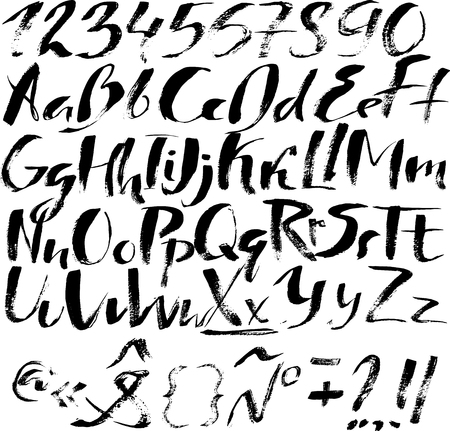 1234567890
AaBbCcDdEeFf
GgHhIiJjKkLlMm
NnOoPpQqRrSsTt
UuVvWwXxYyZz
@«&{}Ñº±?!!